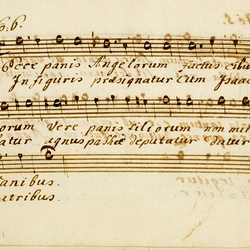 Ecce panis Angelorum factus cibu
In figuris præsignatur Cum Isaac
orum Vere panis filiorum non mit
atur agnus paschæ deputatur datur
anibus.
atribus.